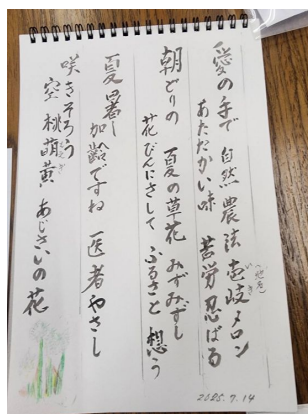 愛の手で 自然農法 壱岐メロン
あたたかい味 苦労忍ばる
朝どりの 夏の草花 みずみずし
花びんにさして ふるさと想う
夏暑し 加齢ですね 医者やさし
咲きそろう
空 桃 萌黄 あじさいの花
2025.7.14